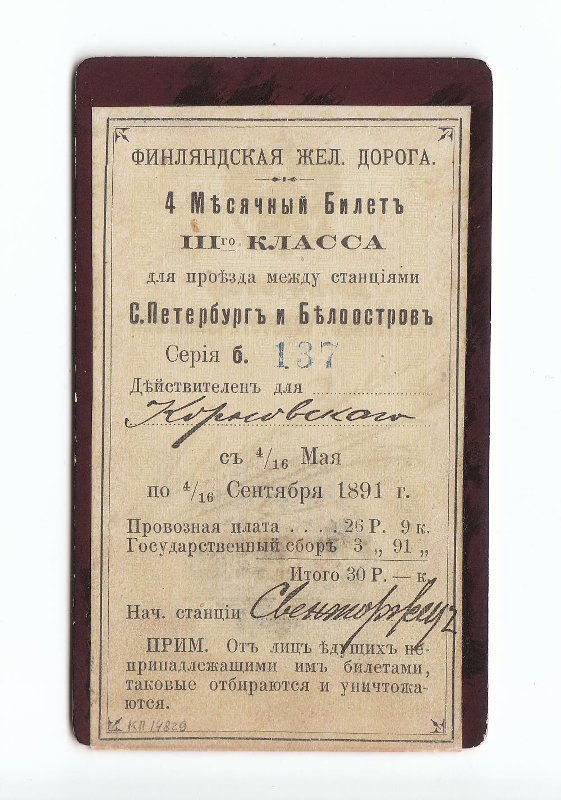 ФИНЛЯНДСКАЯ ЖЕЛ. ДОРОГА.
4 Мѣсячный Билетъ
IIIго КЛАССА
для проѣзда между станціями
С.Петербургъ и Бѣлоостровъ
Серія б. 137
Дѣйствителенъ для
съ 4/16 Мая
по 4/16 Сентября 1891 г.
Провозная плата . . . . 26 Р. 9 к.
Государственный сборъ 3 „ 91 „
Итого 30 Р. — к.
Нач. станціи
ПРИМ. Отъ лицъ ѣдущихъ не-
принадлежашими имъ билетами,
таковые отбираются и уничтожа-
ются.
КП 14829